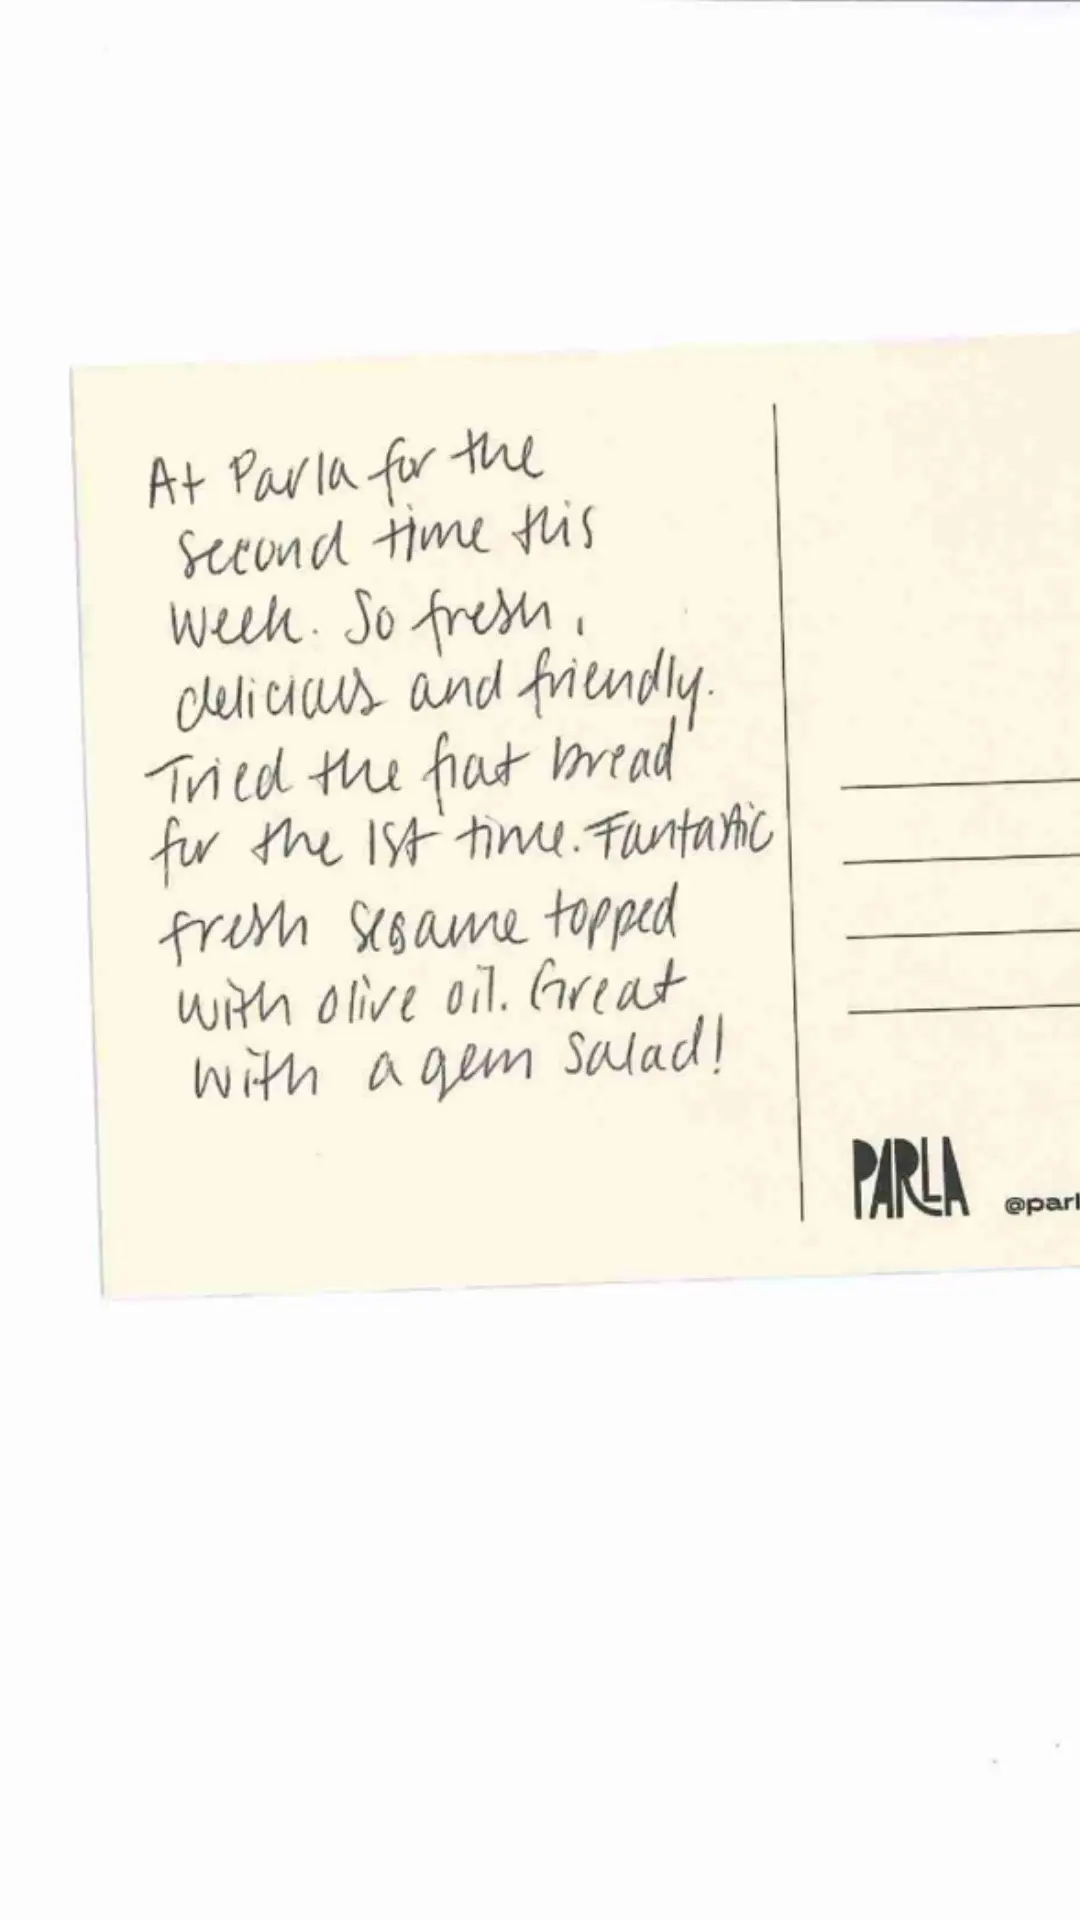 At Parla for the
second time this
week. So fresh,
delicious and friendly.
Tried the flat bread
for the 1st time. Fantastic
fresh sesame topped
with olive oil. Great
with a gem salad!
PARLA
@parl